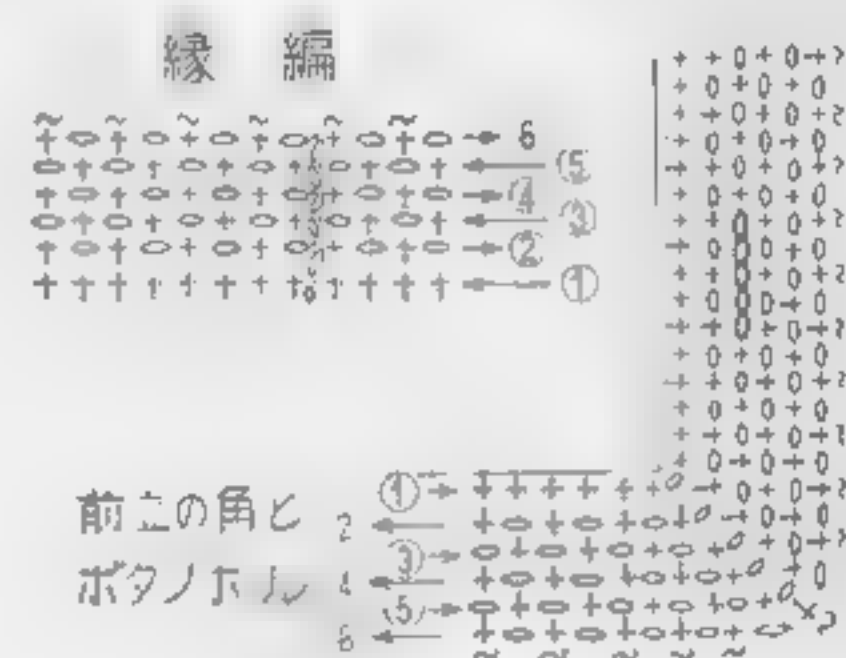 縁編
6
5
4
③
②
①
前立の角と
ボタンホール
①
2
③
4
5
6